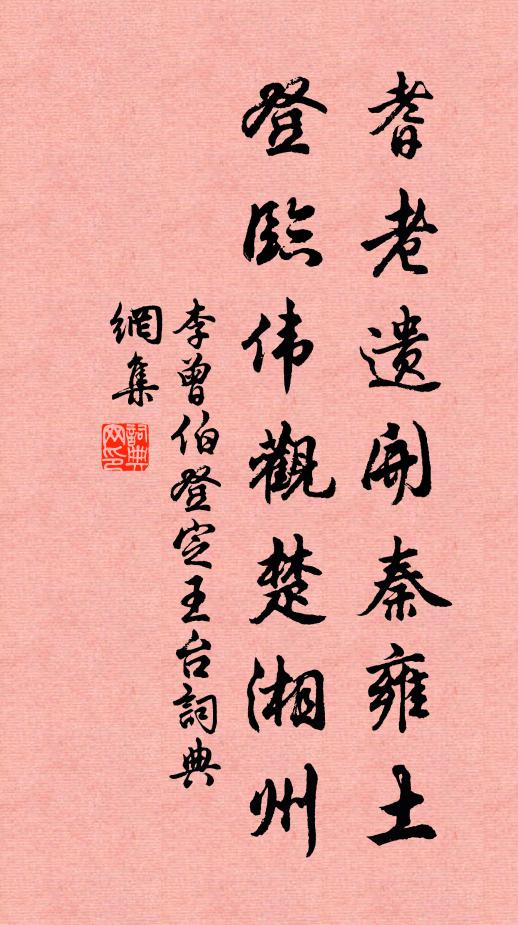 耆老遗開秦雍土
登臨伟觀楚湘州
李曾伯登定王台詞典
網集
詞典网印